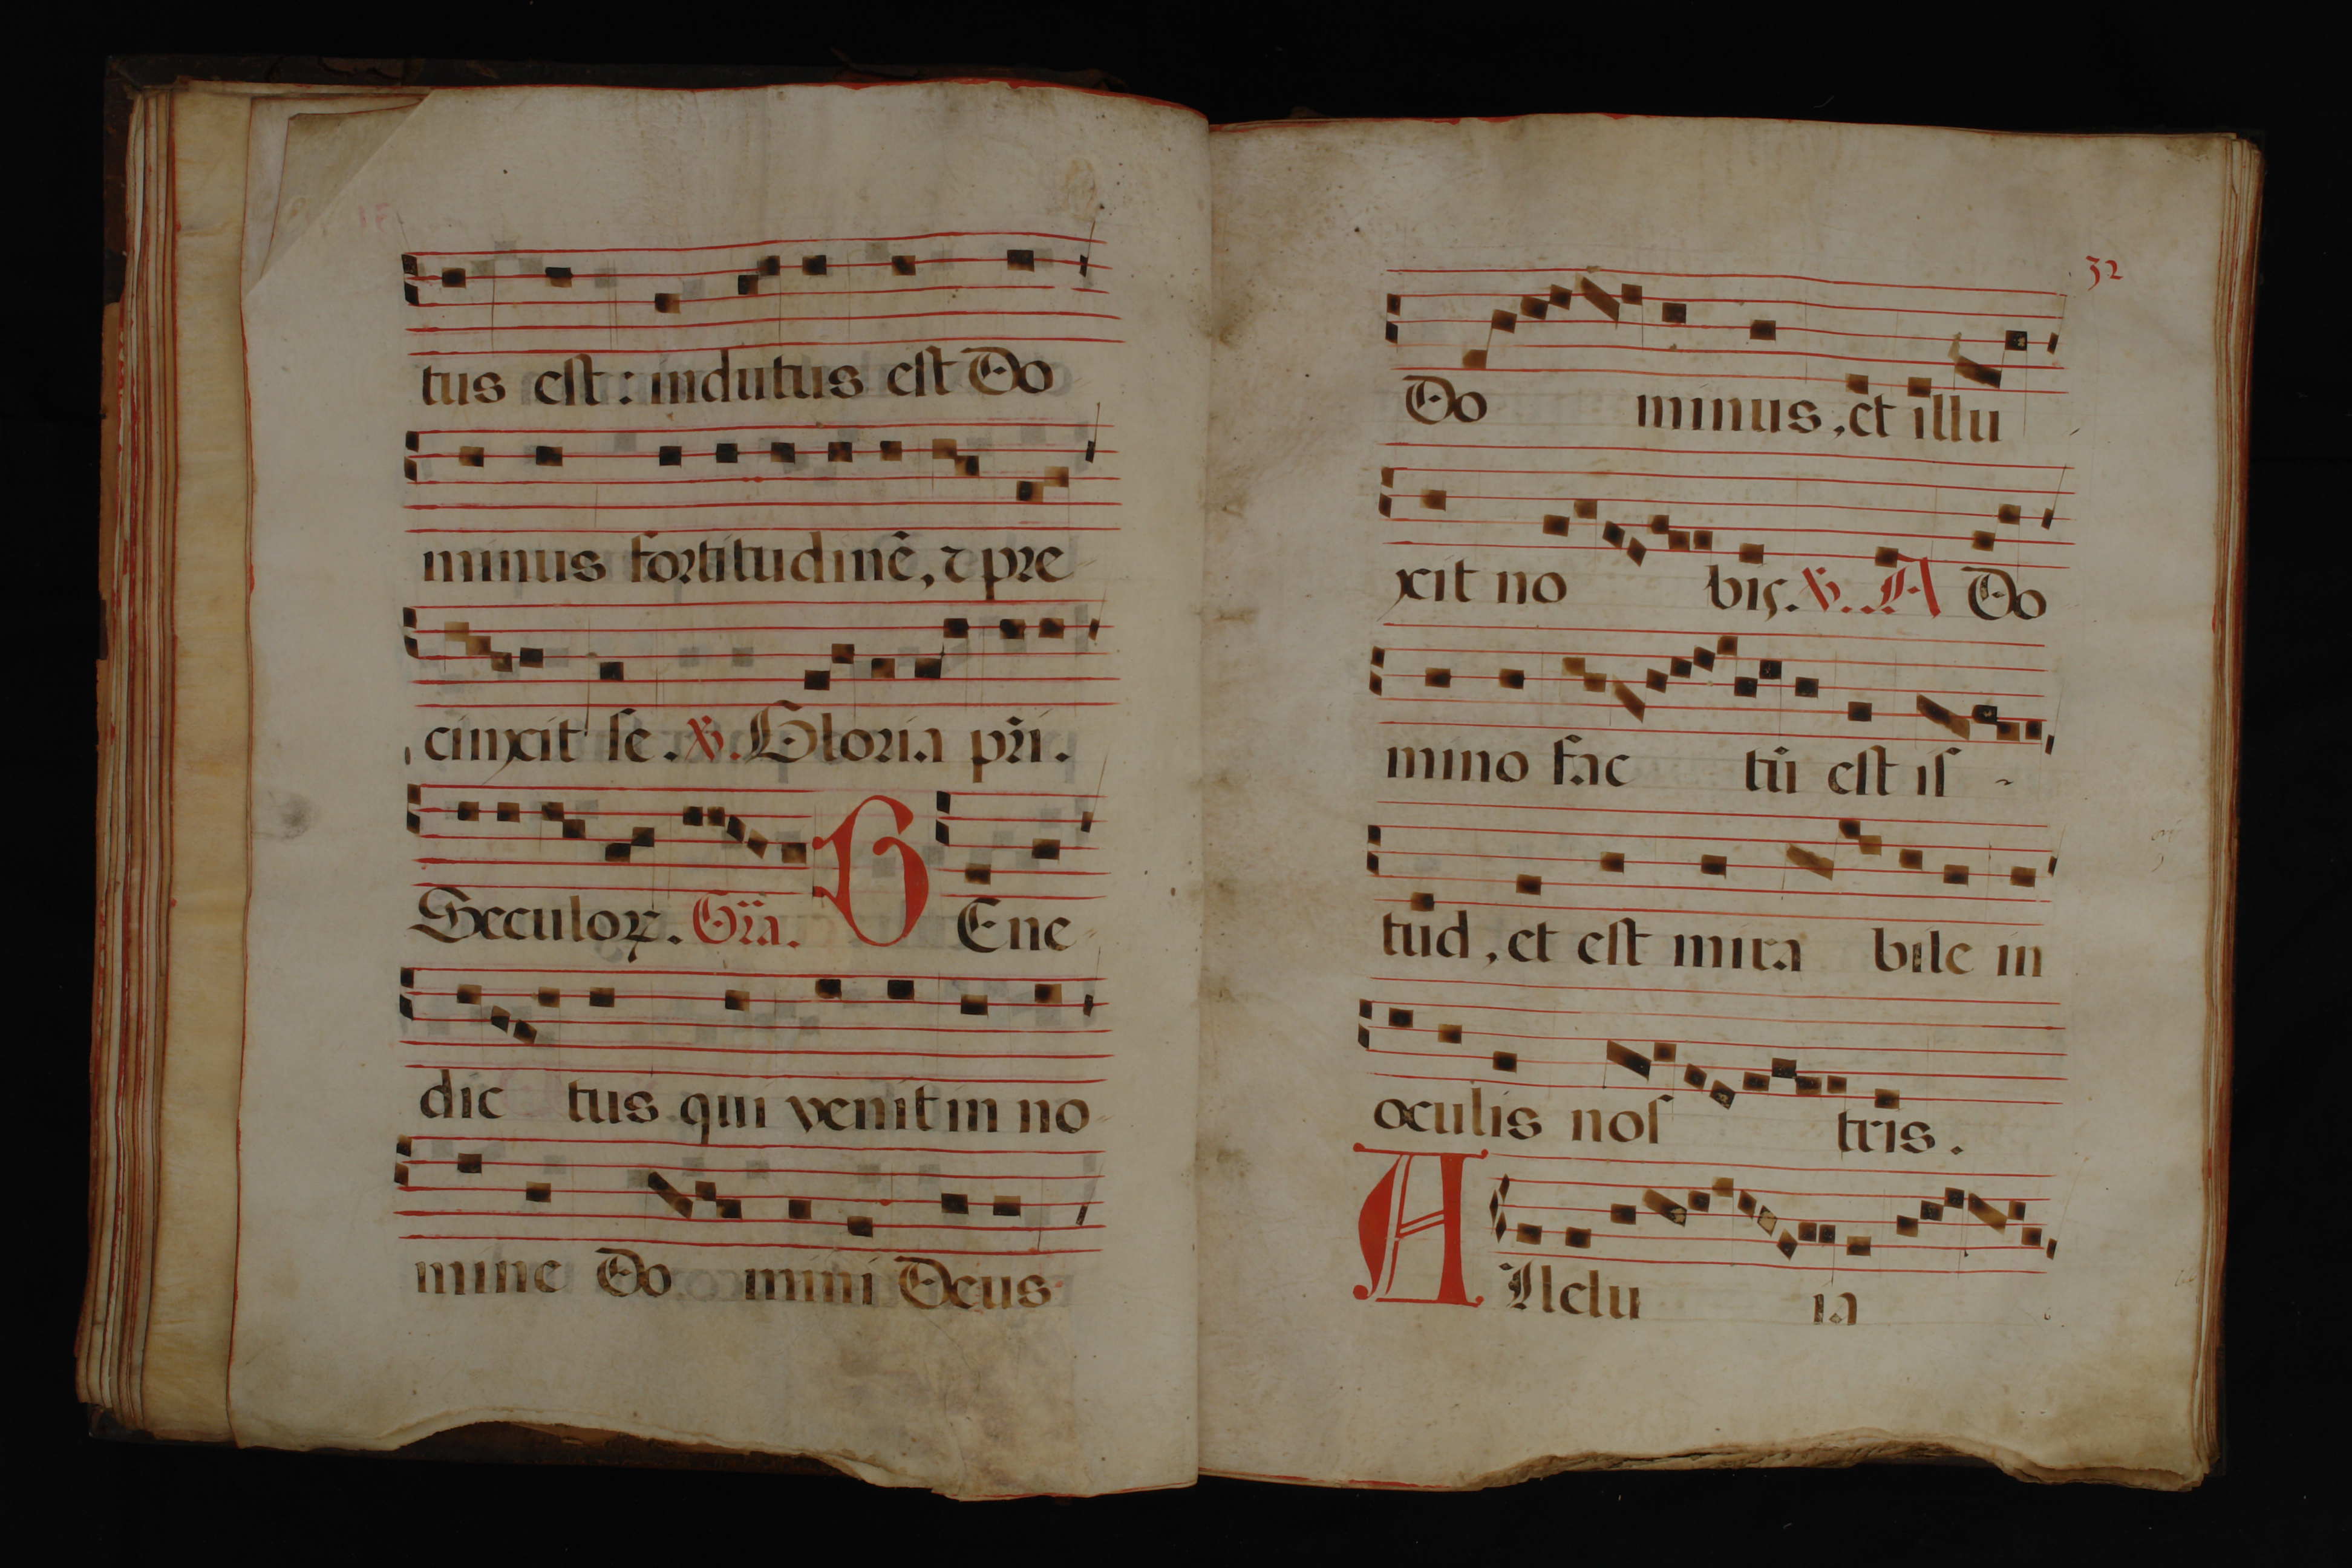 tus est: indutus est Do
minus fortitudinẽ, ⁊ pre
cinxit se. ℣. Gloria pr̃i.
Seculoꝝ. Gr̃a. B Ene
dic tus qui venit in no
mine Do mini Deus
32
Do minus, et illu
xit no bis. ℣. A Do
mino fac tũ est is -
tud, et est mira bile in
oculis nos tris.
A Llelu ia